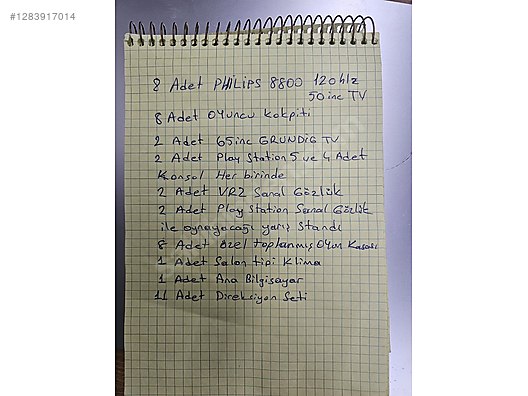 #1283917014
8 Adet PHiLiPS 8800 120 Hz
50 inc TV
8 Adet Oyuncu Kokpiti
2 Adet 65 inc GRUNDiG TV
2 Adet Play Station 5 ve 4 Adet
Konsol Her birinde
2 Adet VR2 Sanal Gözlük
2 Adet Play Station Sanal Gözlük
ile oynayacağı yarış Standı
8 Adet özel toplanmış Oyun Kasası
1 Adet Salon tipi Klima
1 Adet Ana Bilgisayar
11 Adet Direksiyon Seti
sahibinden.com